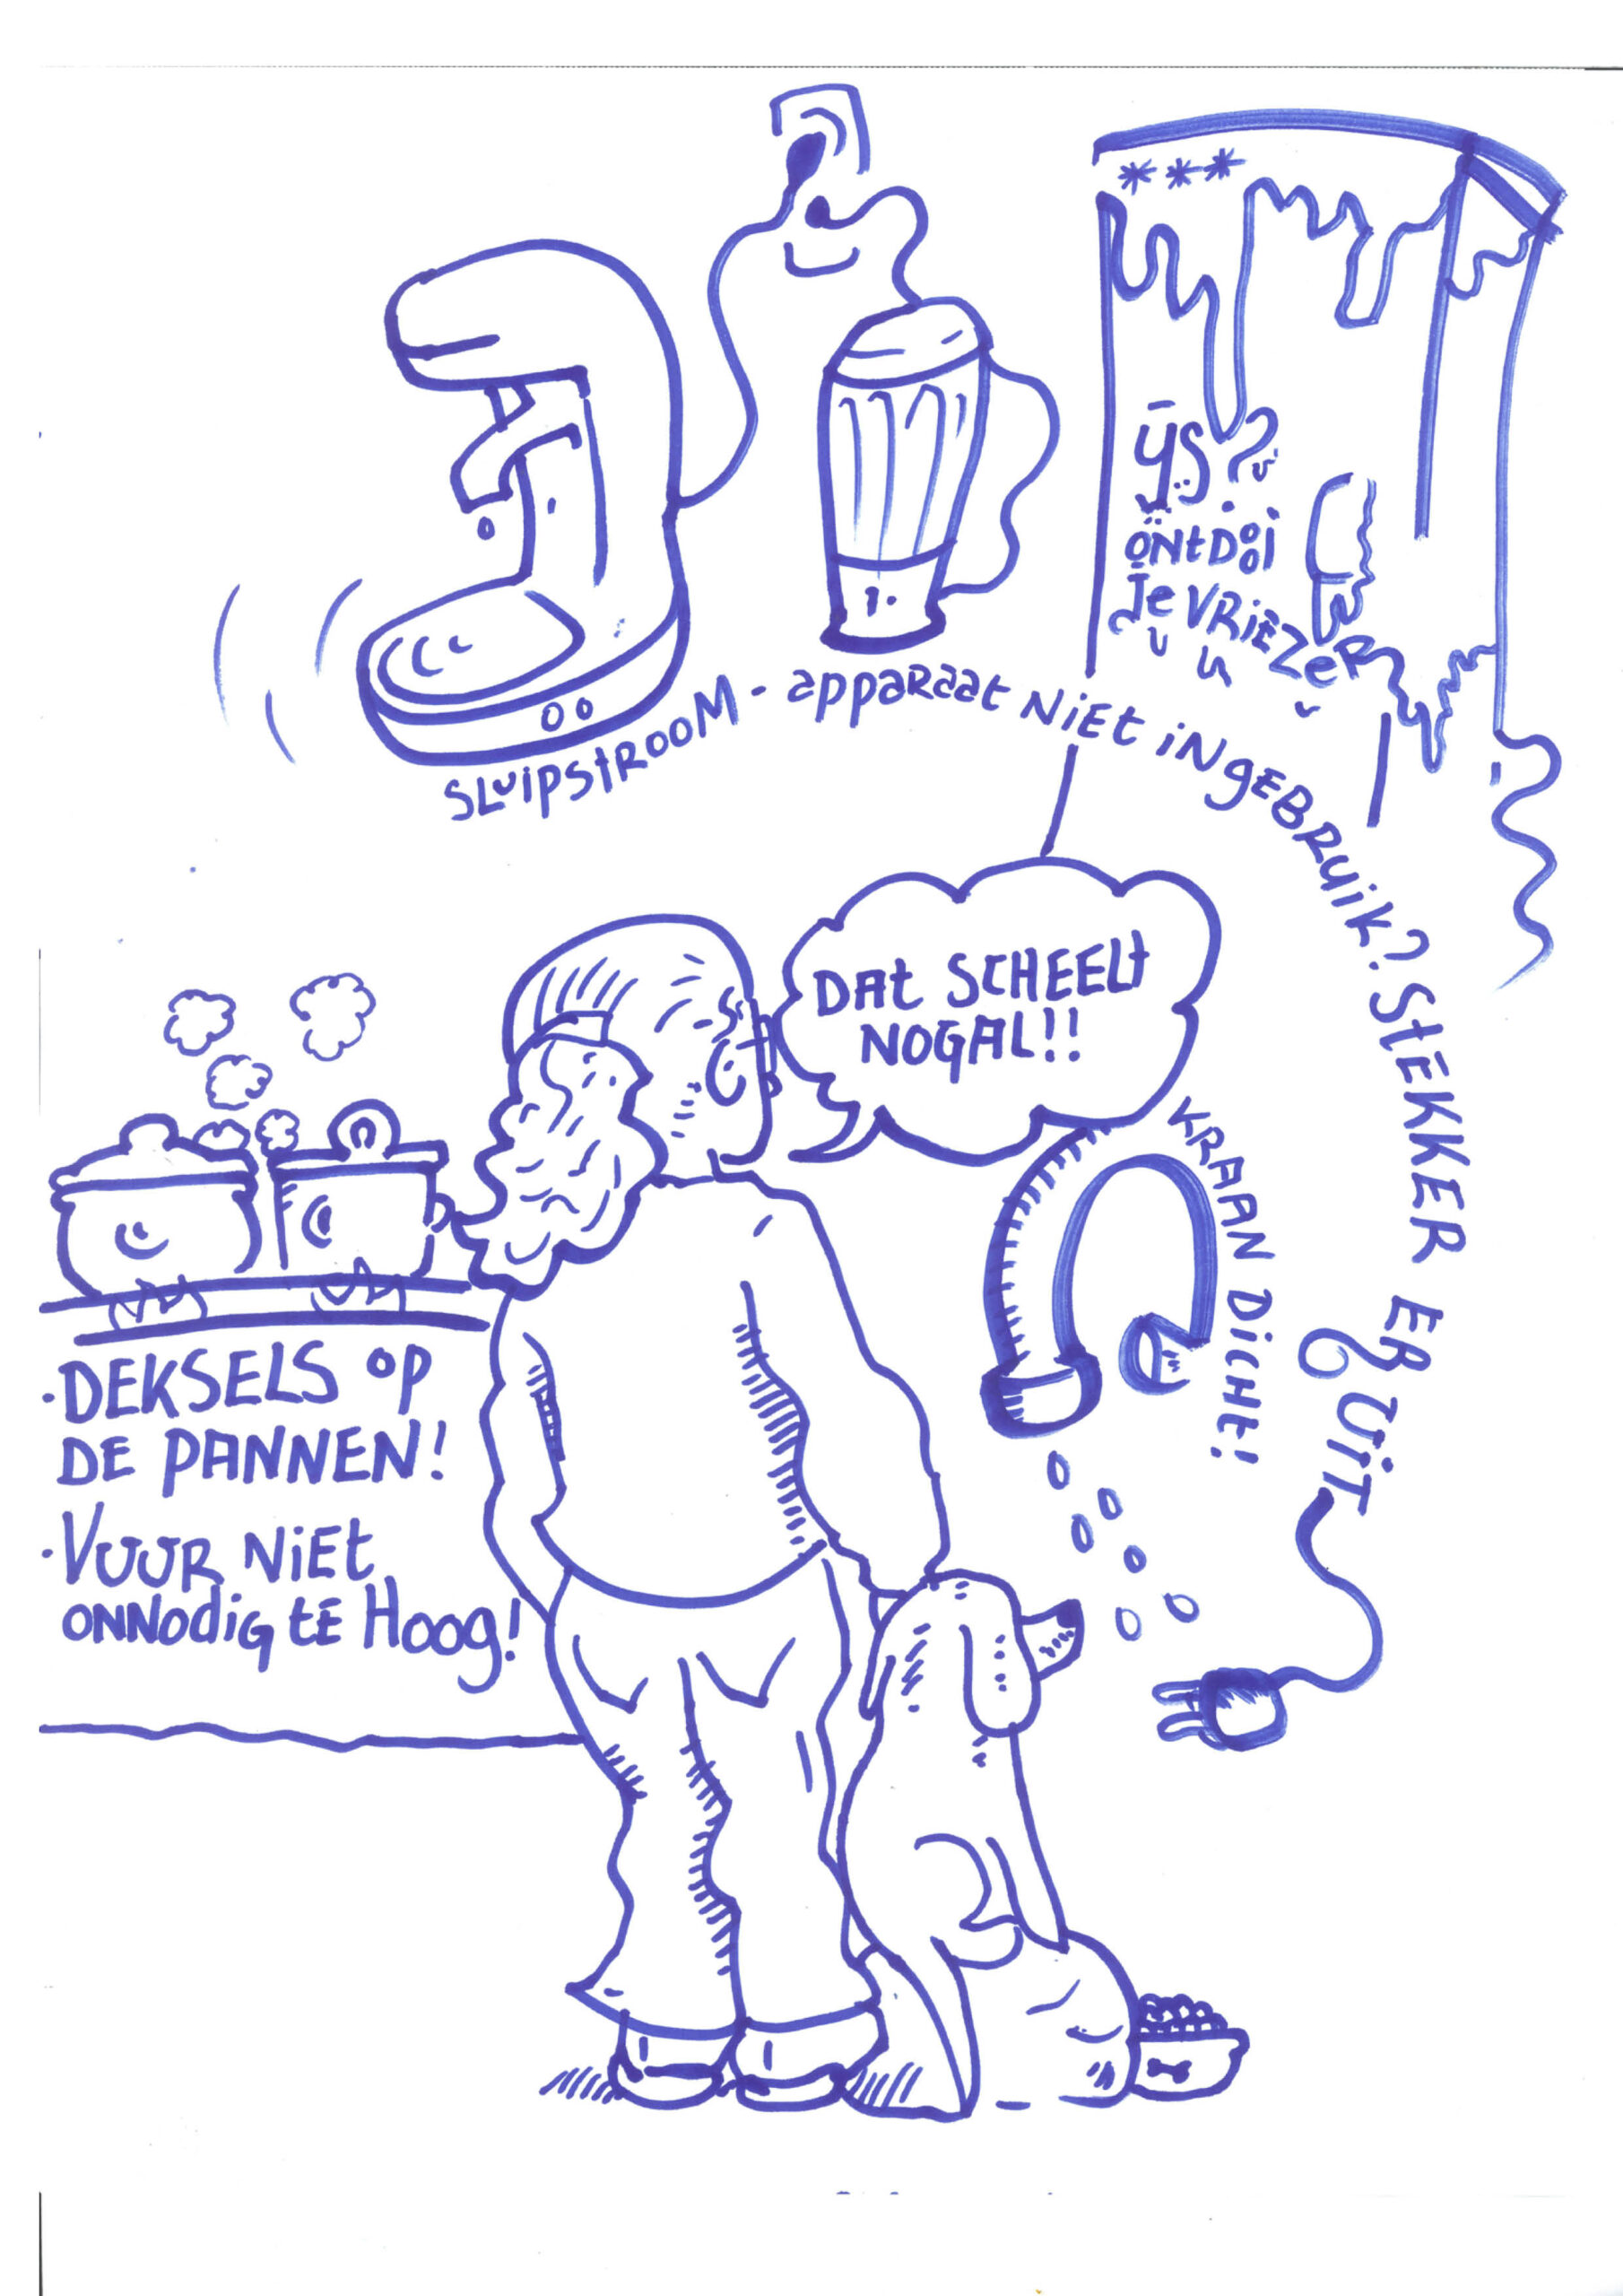 ***
ijs?
ontdooi
je vriezer
SLuipstRooM - appaRaat NiEt iN gEBRuiK? StEKKER ER UiT
DAt SCHEELt
NOGAL!!
KRAAN DiCHt!
·DEKSELS op
DE PANNEN!
·VUUR NiEt
ONNodig tE Hoog!